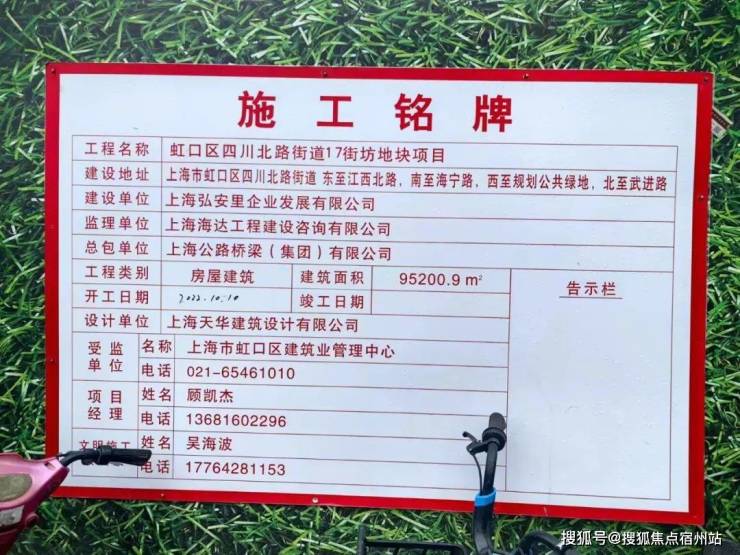 施工铭牌
工程名称 虹口区四川北路街道17街坊地块项目
建设地址 上海市虹口区四川北路街道 东至江西北路，南至海宁路，西至规划公共绿地，北至武进路
建设单位 上海弘安里企业发展有限公司
监理单位 上海海达工程建设咨询有限公司
总包单位 上海公路桥梁（集团）有限公司
工程类别 房屋建筑 建筑面积 95200.9 m²
告示栏
开工日期 2022.10.10 竣工日期
设计单位 上海天华建筑设计有限公司
受监单位 名称 上海市虹口区建筑业管理中心
电话 021-65461010
项目经理 姓名 顾凯杰
电话 13681602296
文明施工 姓名 吴海波
电话 17764281153
搜狐号@搜狐焦点宿州站